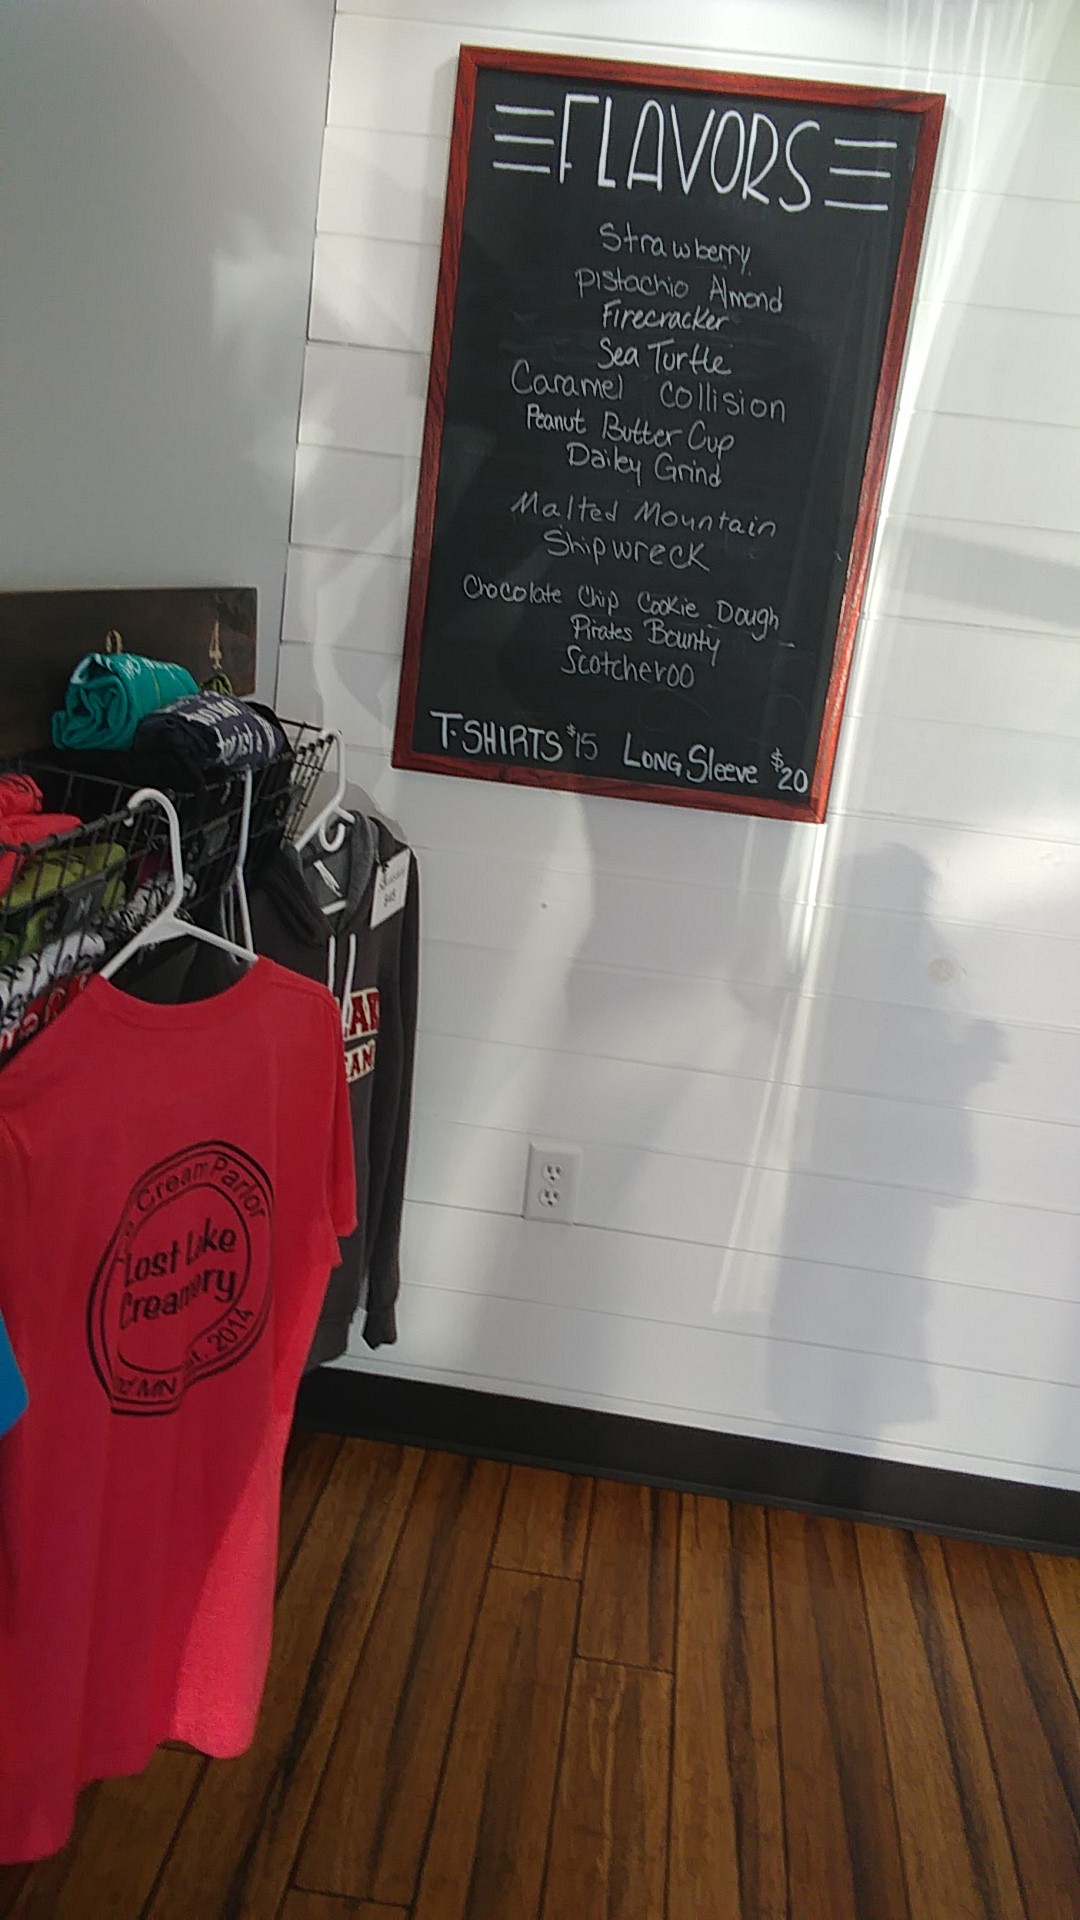 FLAVORS
Strawberry
Pistachio Almond
Firecracker
Sea Turtle
Caramel Collision
Peanut Butter Cup
Dailey Grind
Malted Mountain
Shipwreck
Chocolate Chip Cookie Dough
Pirates Bounty
Scotcheroo
T-SHIRTS $15 LONG Sleeve $20
4
M
$45
Cream Parlor
Lost Lake
Creamery
MN Est. 2014